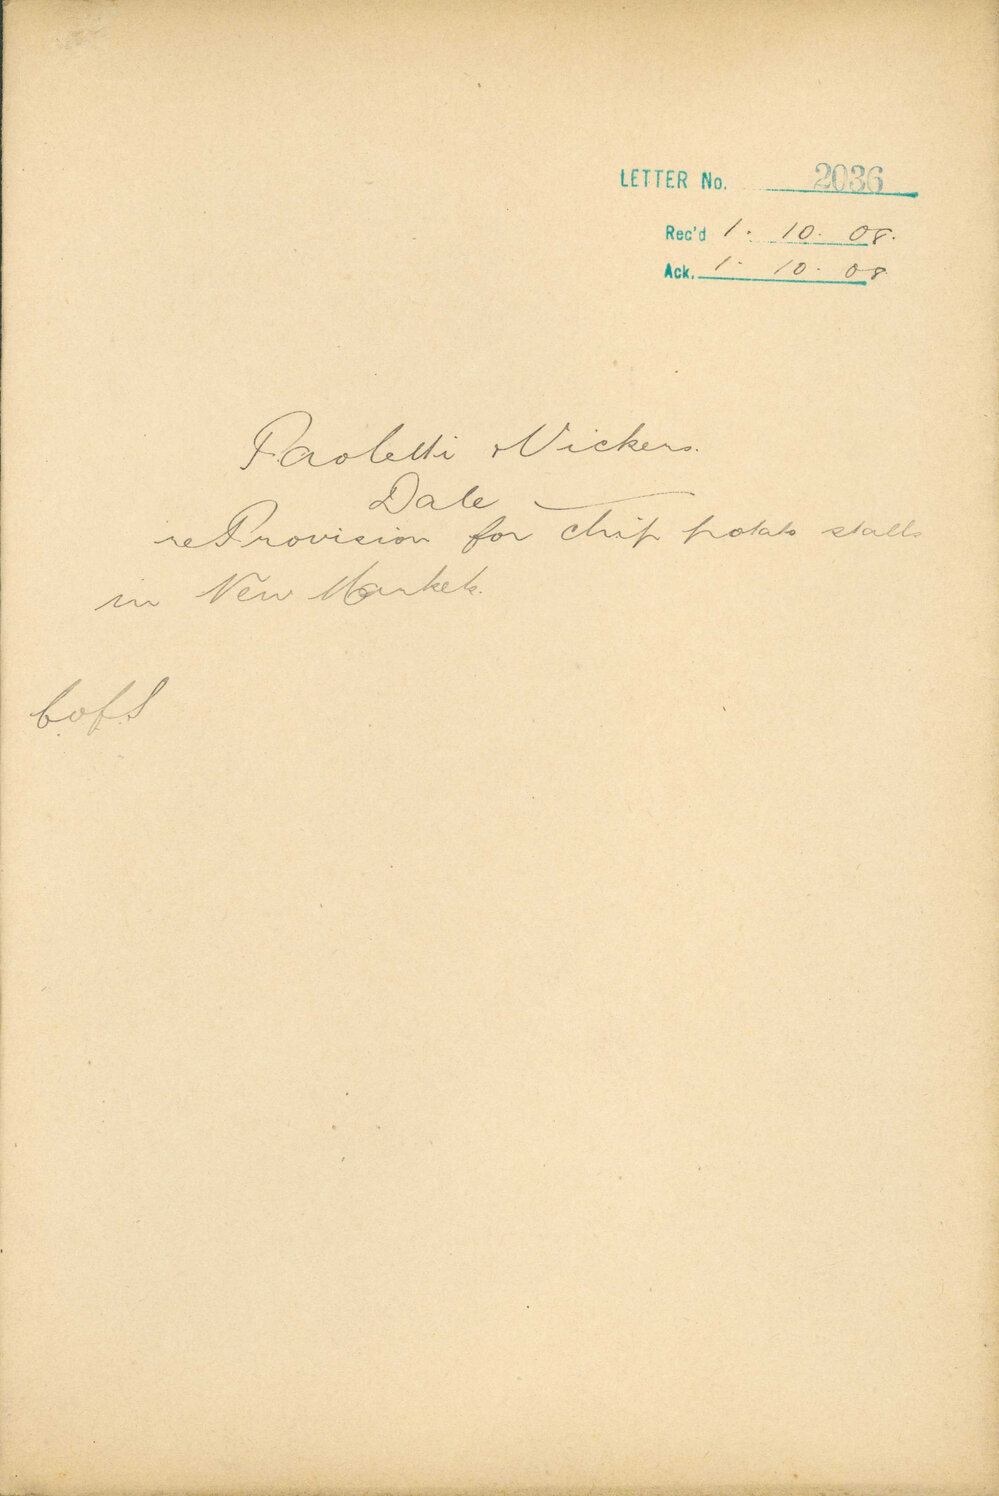 LETTER No. 2036
Rec'd 1. 10. 08.
Ack. 1. 10. 08
Paoletti & Vickers.
Dale
re Provision for chip potato stalls
in New Markets.
C.of.S